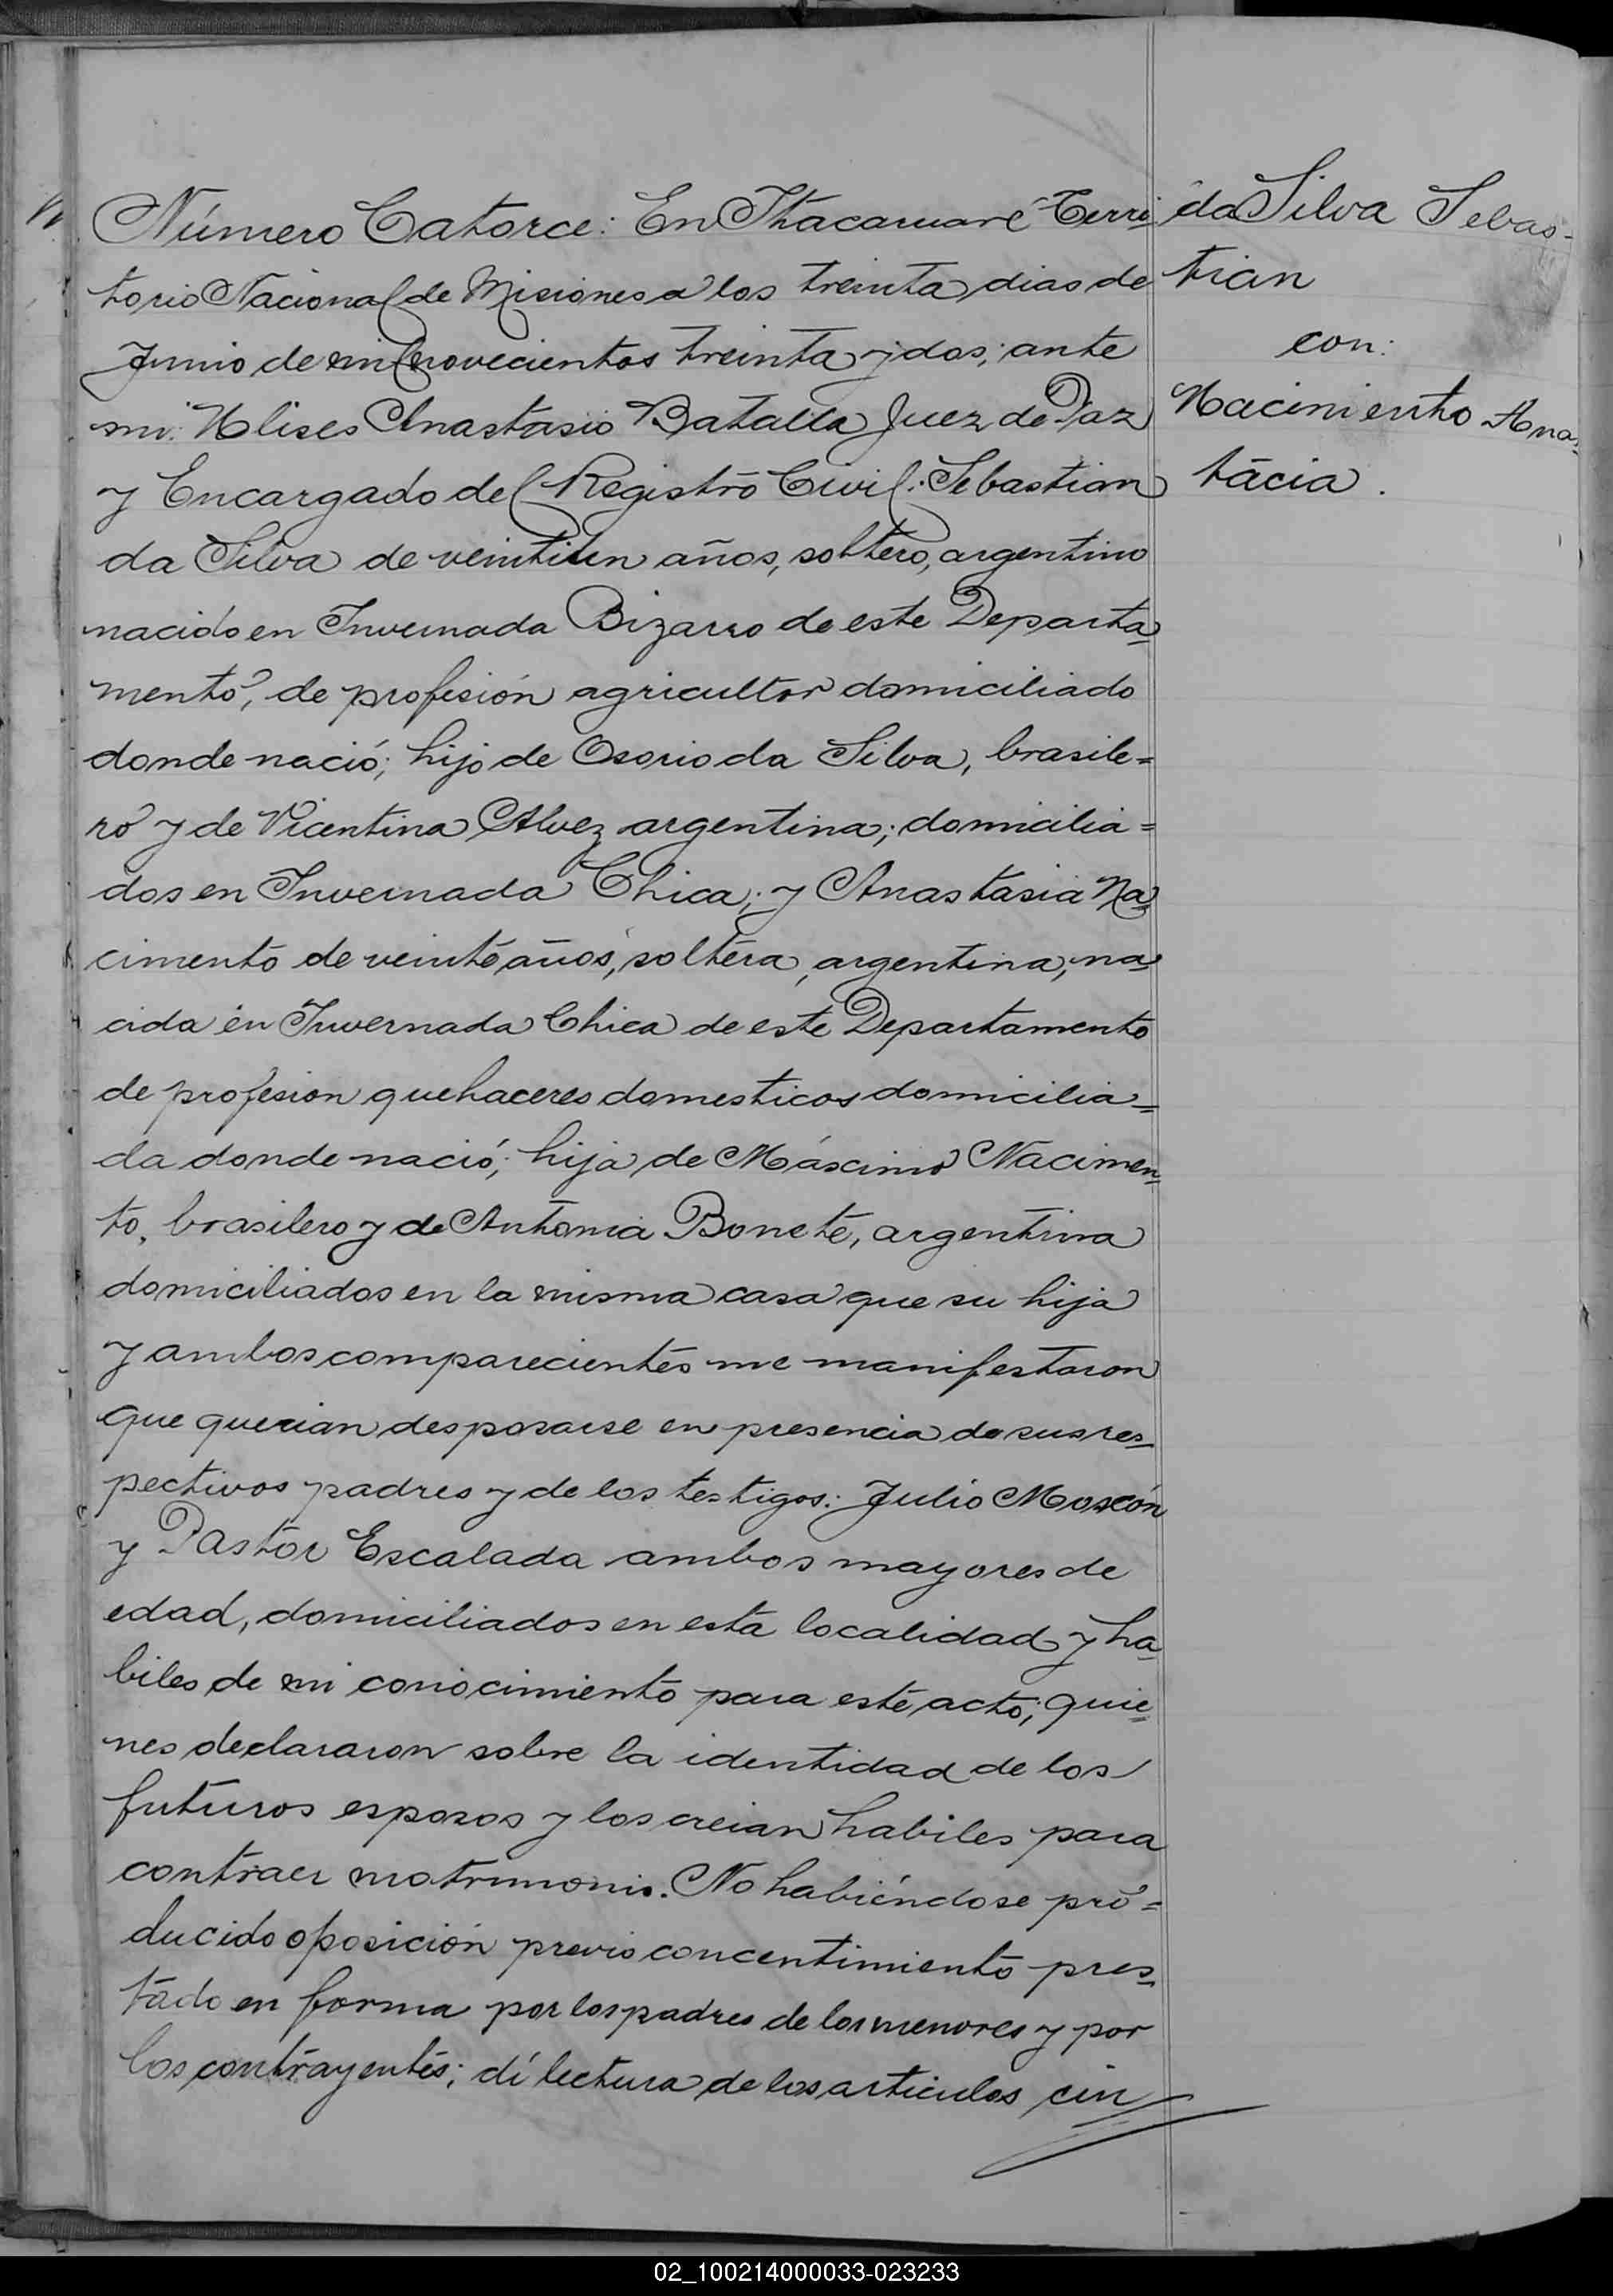 Número Catorce: En Itacaruaré Terri-
torio Nacional de Misiones a los treinta dias de
Junio de mil novecientos treinta y dos; ante
mi: Ulises Anastasio Batalla Juez de Paz
y Encargado del Registro Civil: Sebastian
da Silva de veintiun años, soltero, argentino
nacido en Invernada Bizarro de este Departa=
mento, de profesión agricultor domiciliado
donde nació; hijo de Osorio da Silva, brasile=
ro y de Vicentina Alvez argentina; domicilia=
dos en Invernada Chica; y Anastasia Na=
cimento de veinte años, soltera, argentina, na=
cida en Invernada Chica de este Departamento
de profesion quehaceres domesticos domicilia=
da donde nació; hija de Máscimo Nacimen=
to, brasilero y de Antonia Bonete, argentina
domiciliados en la misma casa que su hija
y ambos comparecientes me manifestaron
que querian desposarse en presencia de sus res=
pectivos padres y de los testigos: Julio
y Pastor Escalada ambos mayores de
edad, domiciliados en esta localidad y ha=
biles de mi conocimiento para este acto; quie=
nes declararon sobre la identidad de los
futuros esposos y los creian habiles para
contraer matrimonio. No habiéndose pro=
ducido oposición previo concentimiento pres=
tado en forma por los padres de los menores y por
los contrayentes; dí lectura de los articulos cin
da Silva Sebas-
tian
con:
Nacimiento Anas-
tacia.
02_100214000033-023233